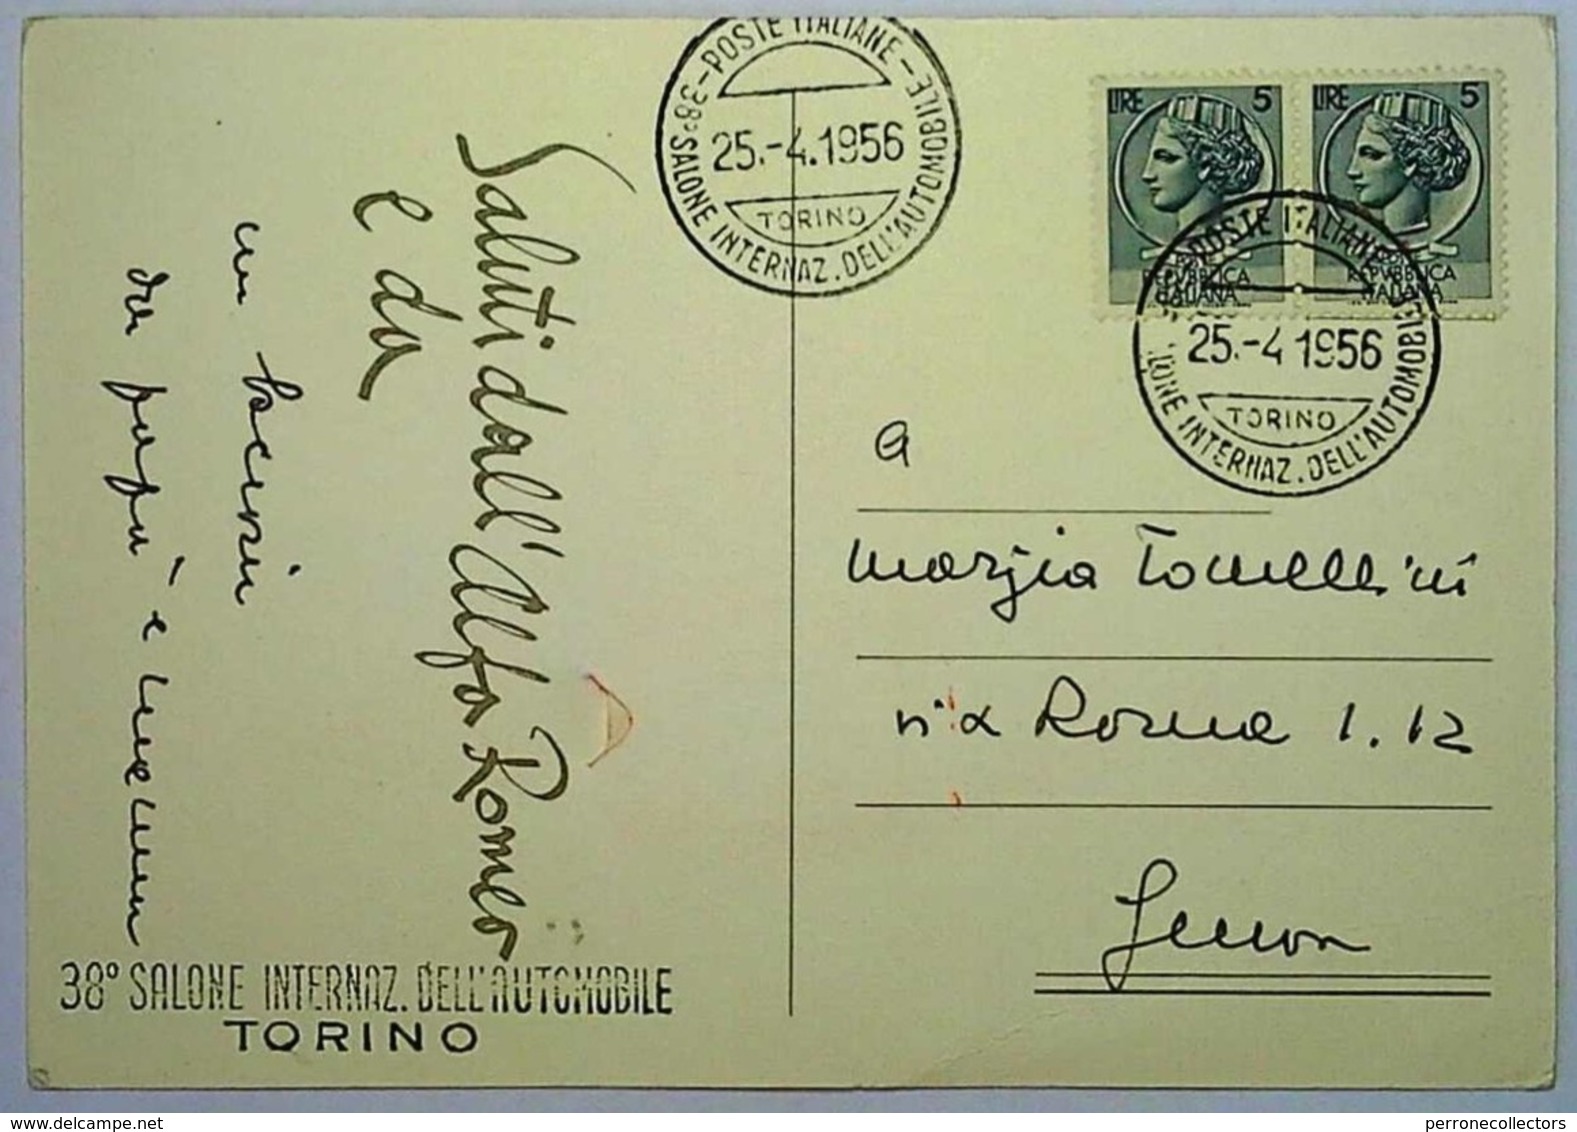 POSTE ITALIANE
38° SALONE INTERNAZ. DELL'AUTOMOBILE
25.-4.1956
TORINO
LIRE 5
REPVBBLICA
ITALIANA
LIRE 5
REPVBBLICA
ITALIANA
POSTE ITALIANE
LONE INTERNAZ. DELL'AUTOMOBILE
25.-4 1956
TORINO
Saluti dall'Alfa Romeo
e da
un bacino
da papà e mamma
a
Marzia Tonellini
via Roma 1.12
Genova
38° SALONE INTERNAZ. DELL'AUTOMOBILE
TORINO
perronecollectors